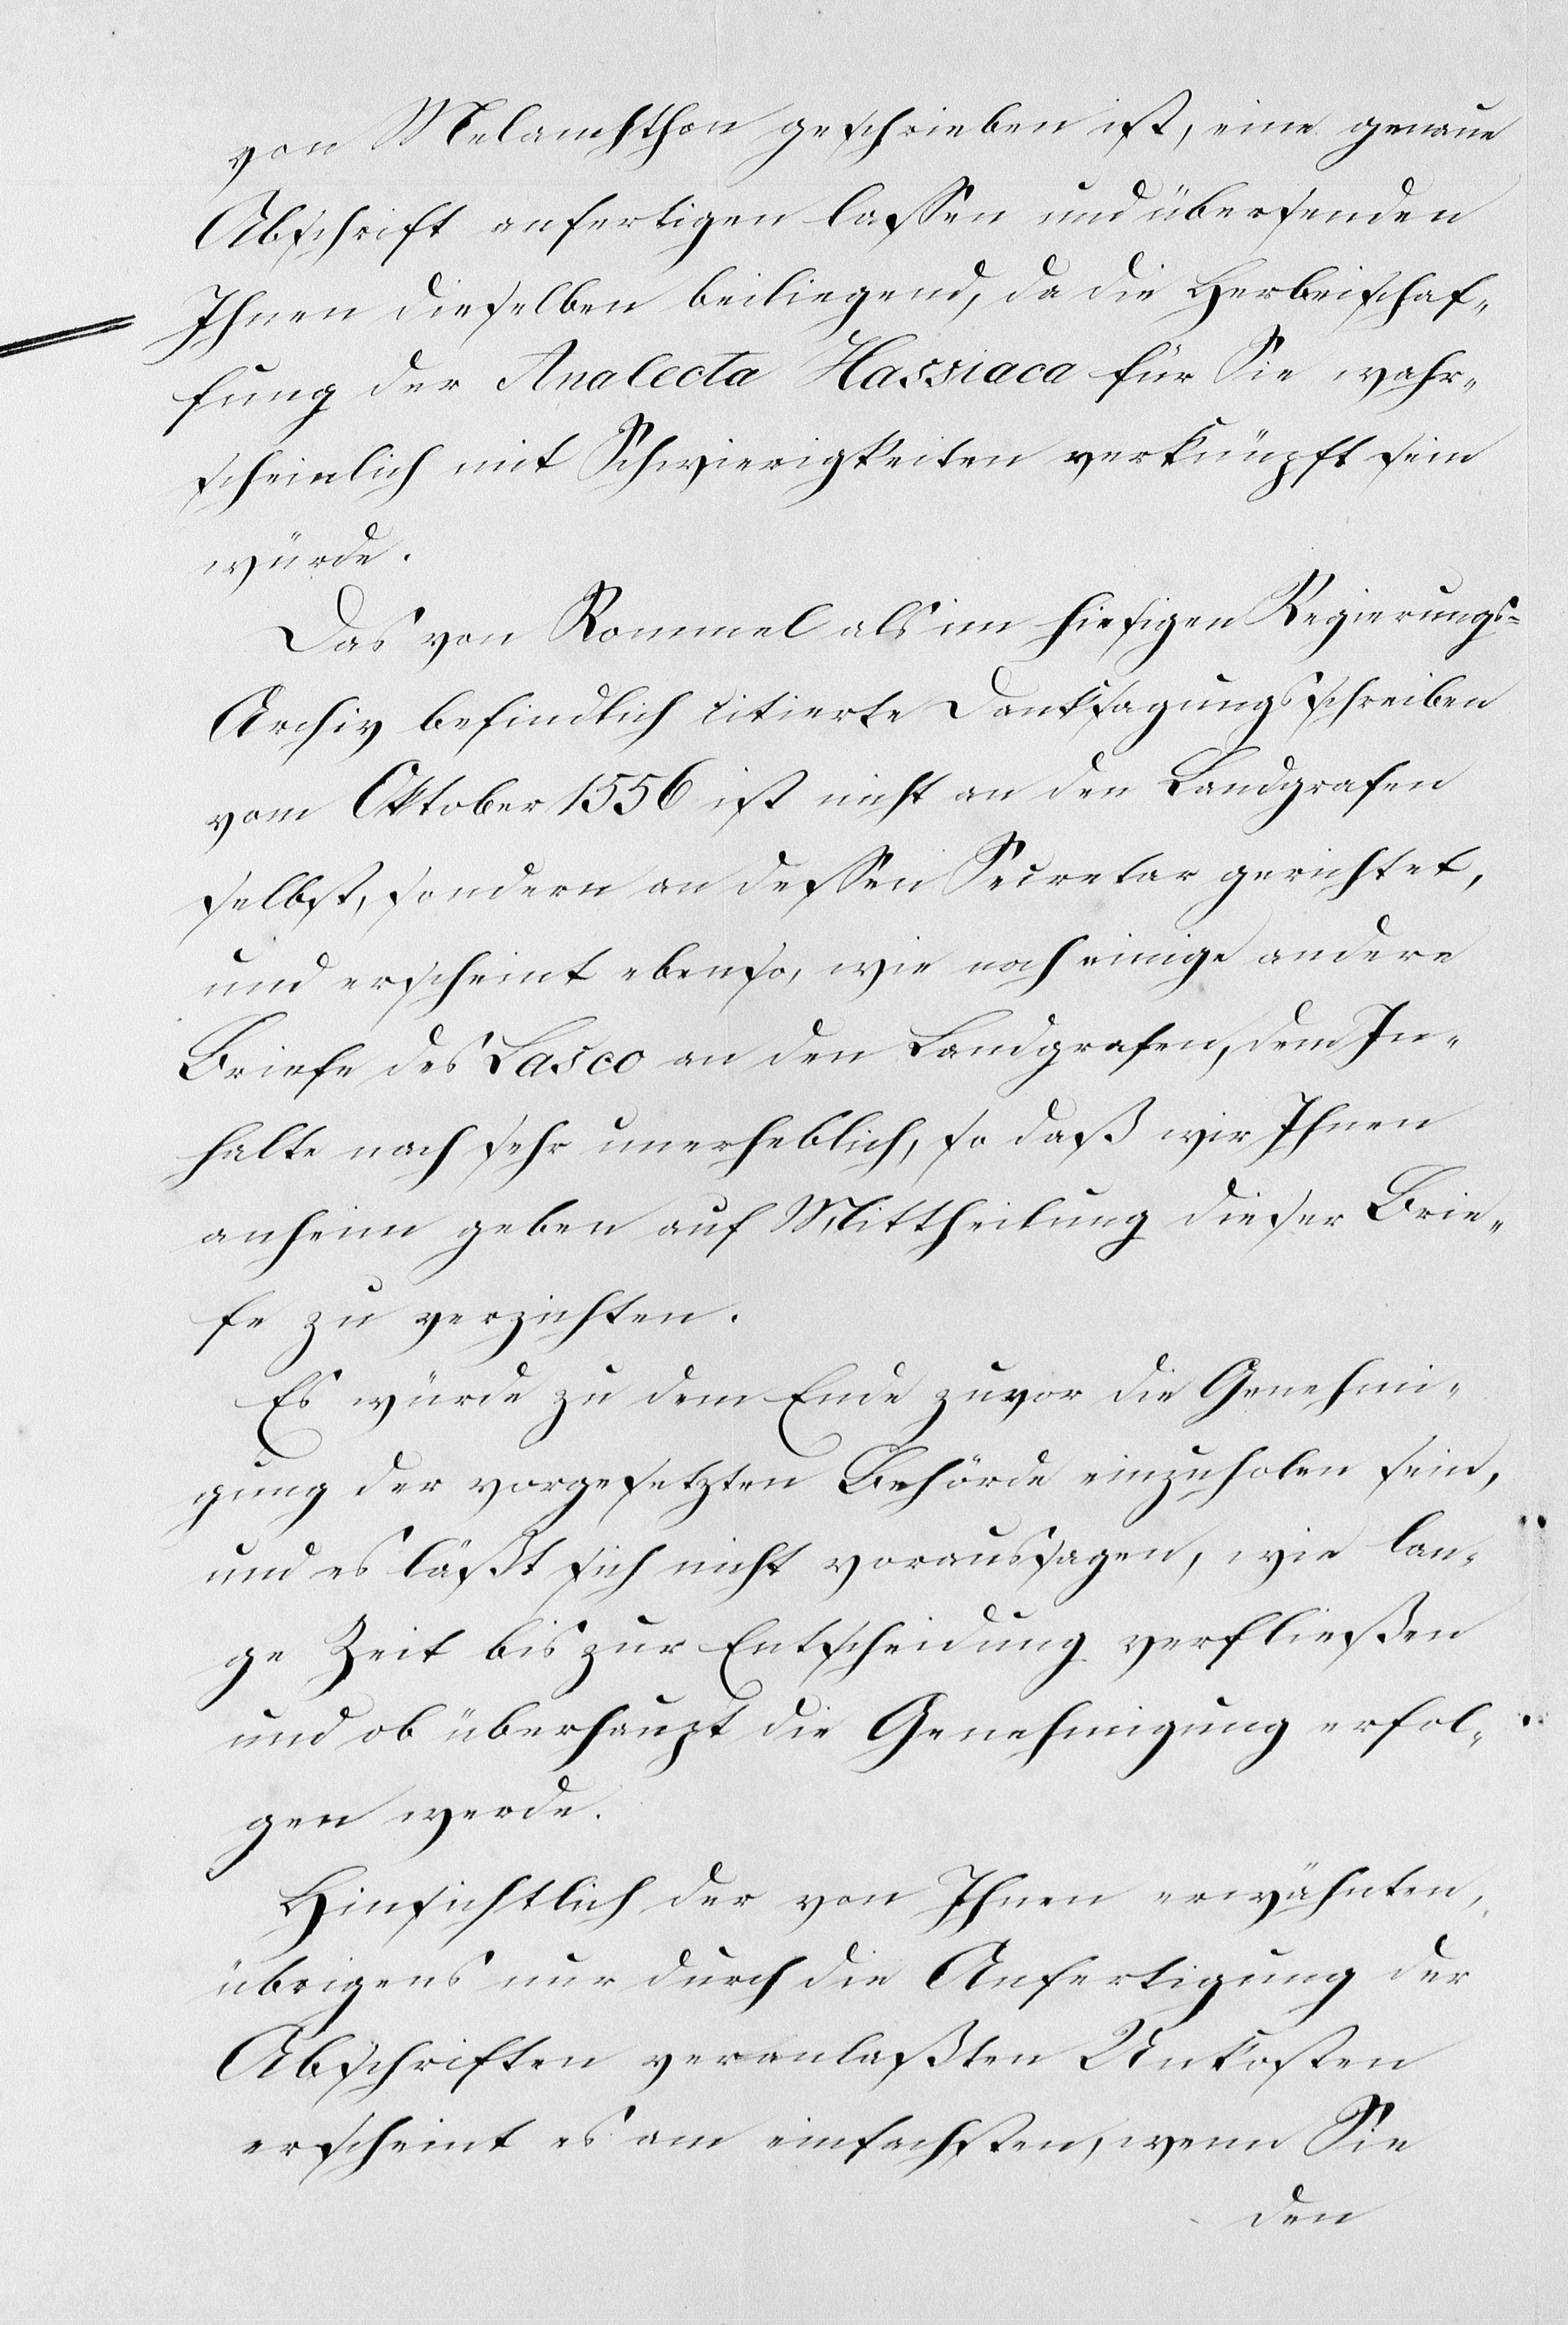 von Melanchthon geschrieben ist, eine genaue
Abschrift anfertigen lassen und übersenden
Ihnen dieselben beiliegend, da die Herbeischaf-
fung der Analecta Hassiaca für Sie wahr-
scheinlich mit Schwierigkeiten verknüpft sein
würde.
Das von Rommel als im hiesigen Regierungs-
Archiv befindlich citierte Danksagungsschreiben
vom Oktober 1556 ist nicht an den Landgrafen
selbst, sondern an dessen Secretar gerichtet,
und erscheint ebenso, wie noch einige andere
Briefe des Lasco an den Landgrafen, dem In-
halte nach sehr unerheblich, so daß wir Ihnen
anheim geben auf Mittheilung dieser Brie-
fe zu verzichten.
Es würde zu dem Ende zuvor die Genehmi-
gung der vorgesetzten Behörde einzuholen sein,
und es läßt sich nicht voraussagen, wie lan-
ge Zeit bis zur Entscheidung verfließen
und ob überhaupt die Genehmigung erfol-
gen werde.
Hinsichtlich der von Ihnen erwähnten,
übrigens nur durch die Anfertigung der
Abschriften veranlaßten Unkosten
erscheint es am einfachsten, wenn Sie
den